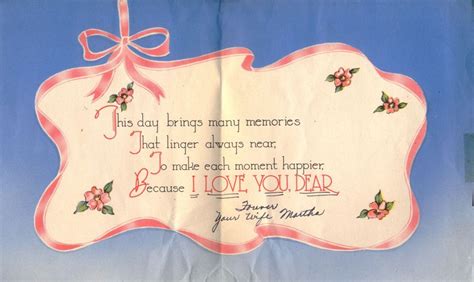 This day brings many memories
That linger always near,
To make each moment happier,
Because I LOVE YOU, DEAR
Forever
Your Wife Martha